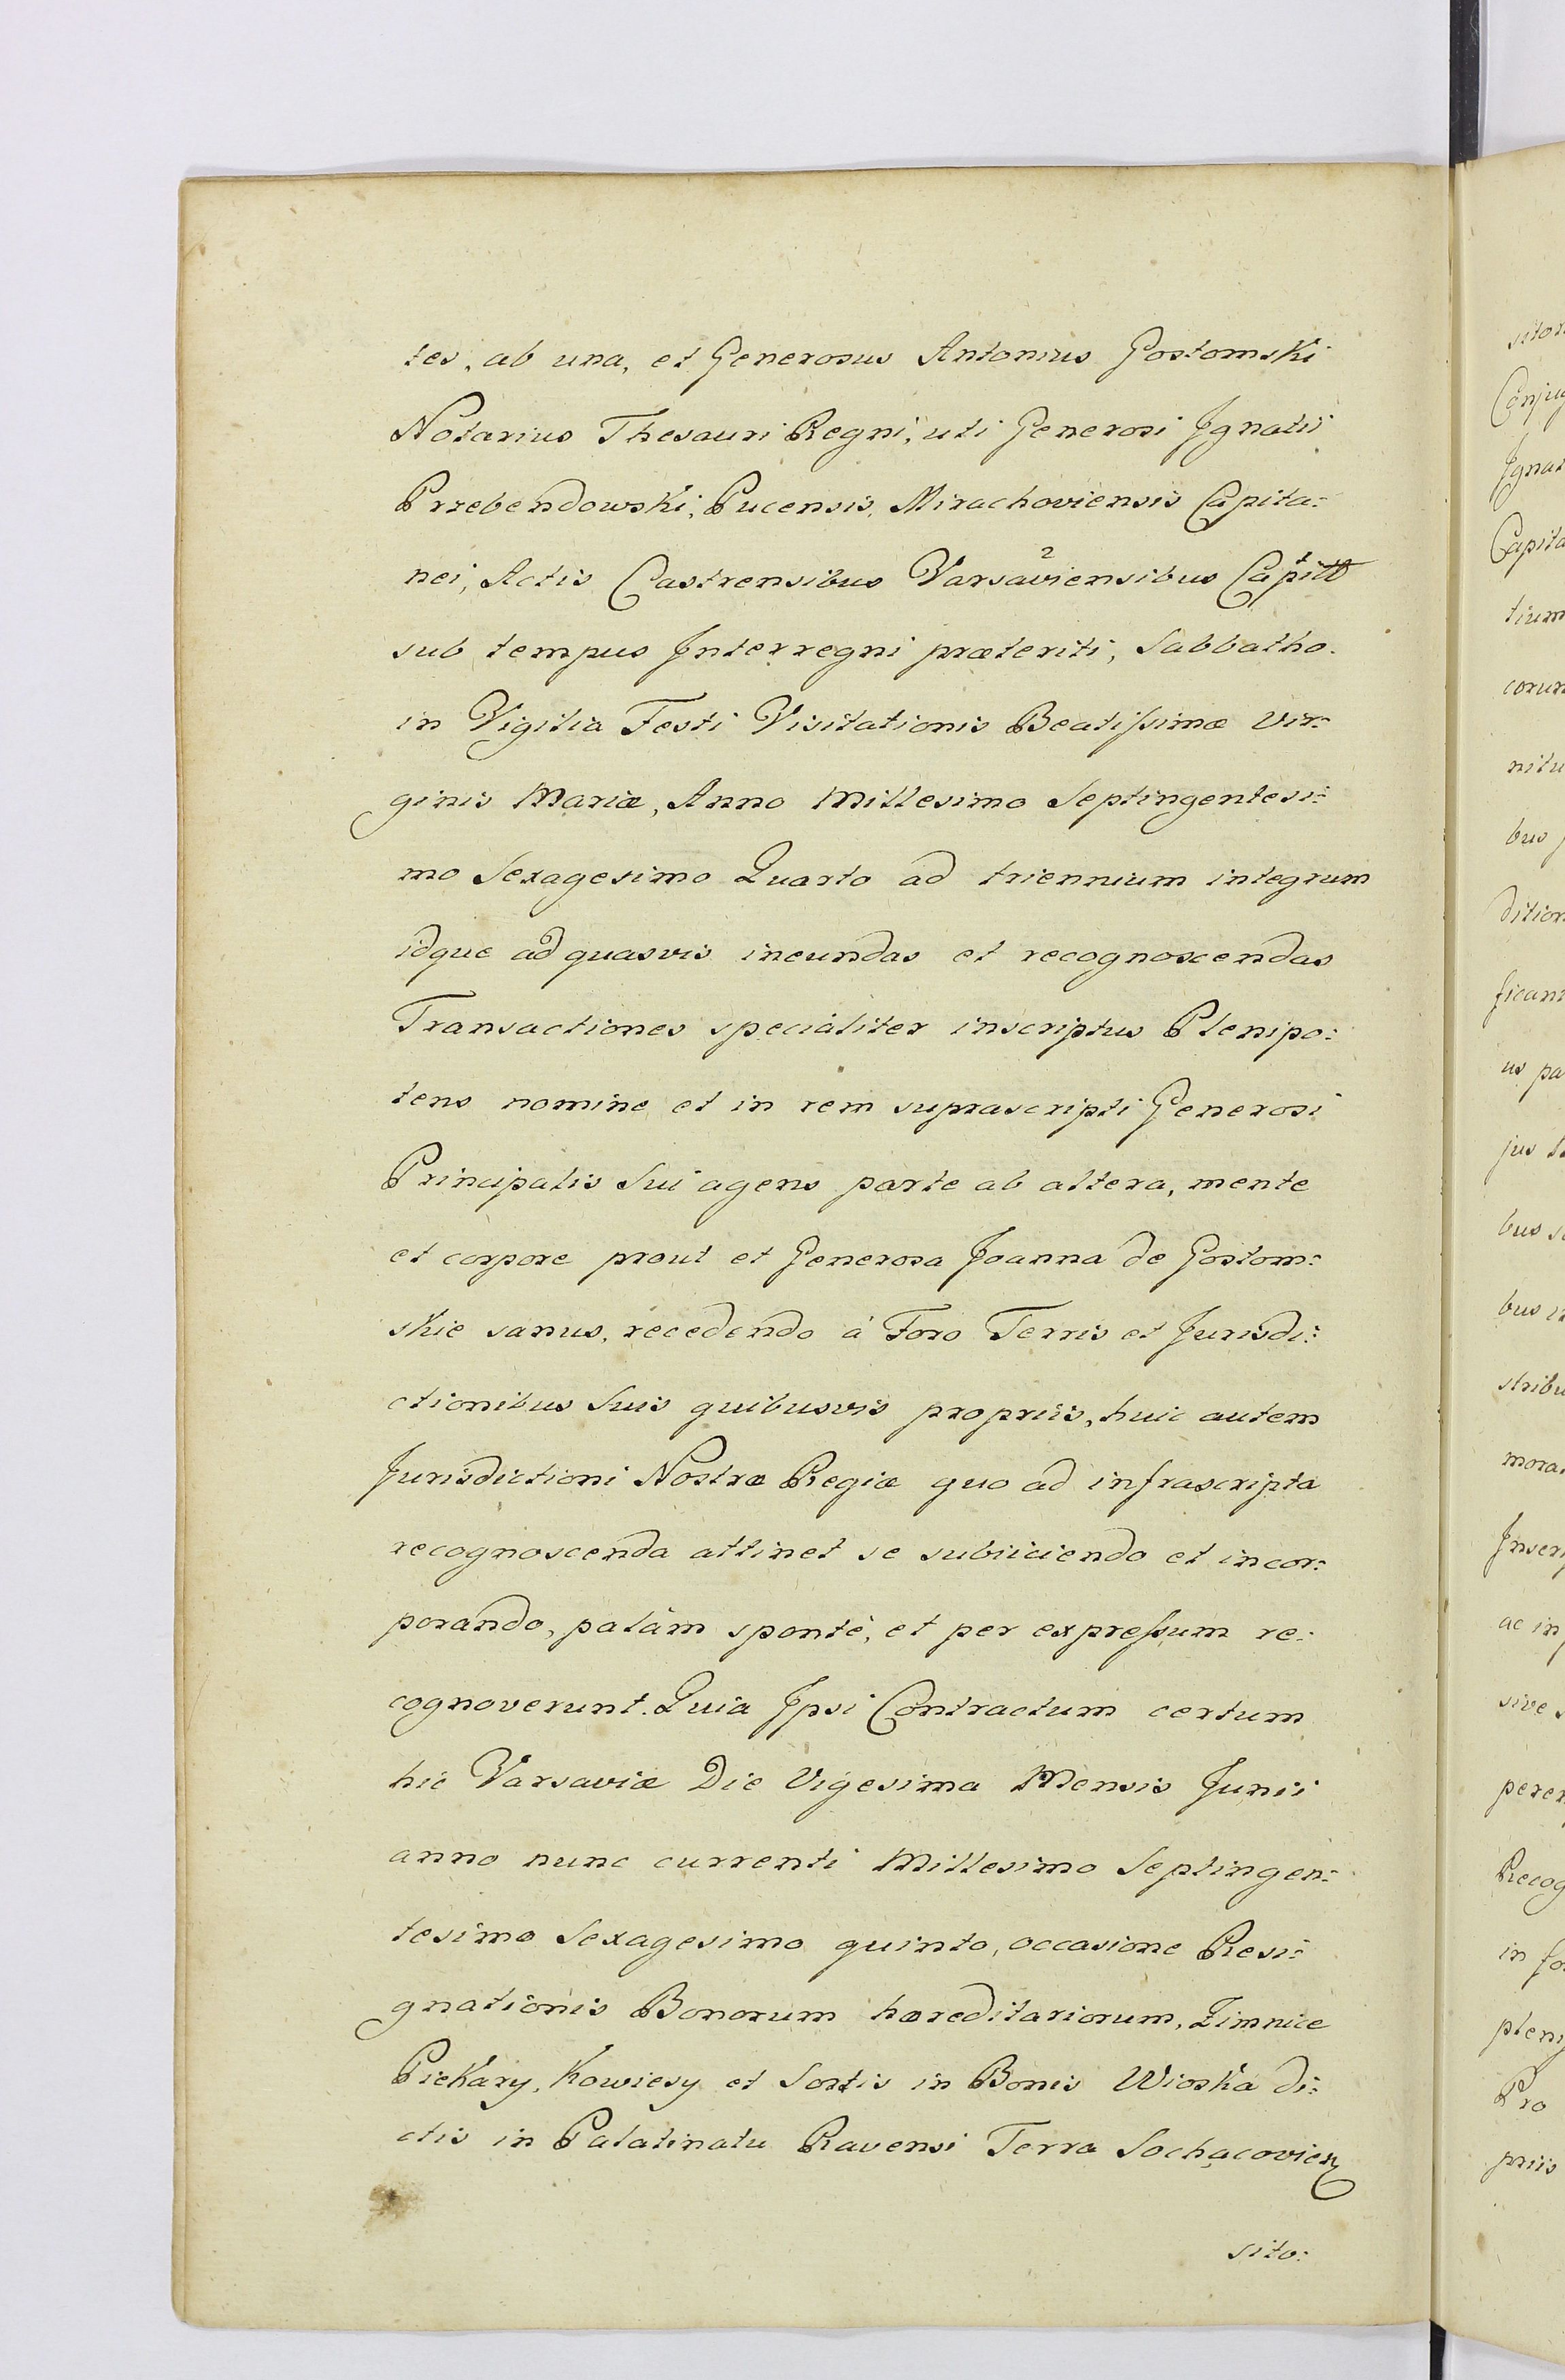 tes, ab una, et Generosus Antonius Gostomski
Notarius Thesauri Regni, uti Generosi Ignatii
Przebendowski, Pucensis, Mirachoviensis Capita:
nei, Actis Castrensibus Varsaviensibus Capitt
sub tempus Interregni præteriti, Sabbatho.
in Vigilia Festi Visitationis Beatissimæ Vir:
ginis Mariæ, Anno Millesimo Septingentesi:
mo Sexagesimo Quarto ad triennium integrum
idque ad quasvis ineundas et recognoscendas
Transactiones specialiter inscriptus Plenipo:
tens nomine et in rem suprascripti Generosi
Principalis Sui agens parte ab altera, mente
et corpore prout et Generosa Joanna de Gostom:
skie sanus, recedendo à Foro Terris et Jurisdi:
ctionibus Suis quibusvis propriis, huic autem
Jurisdictioni Nostræ Regiæ quo ad infrascripta
recognoscenda attinet se subiiciendo et incor:
porando, palàm spontè, et per expressum re:
cognoverunt. Quia Ipsi Contractum certum
hic Varsaviæ Die Vigesima Mensis Junii
anno nunc currenti Millesimo Septingen:
tesimo Sexagesimo quinto, occasione Resi:
gnationis Bonorum hæreditariorum, Zimnice
Piekary, Kowiesy et Sortis in Bonis Wioska di:
ctis in Palatinatu Ravensi Terra Sochacovien
sito: